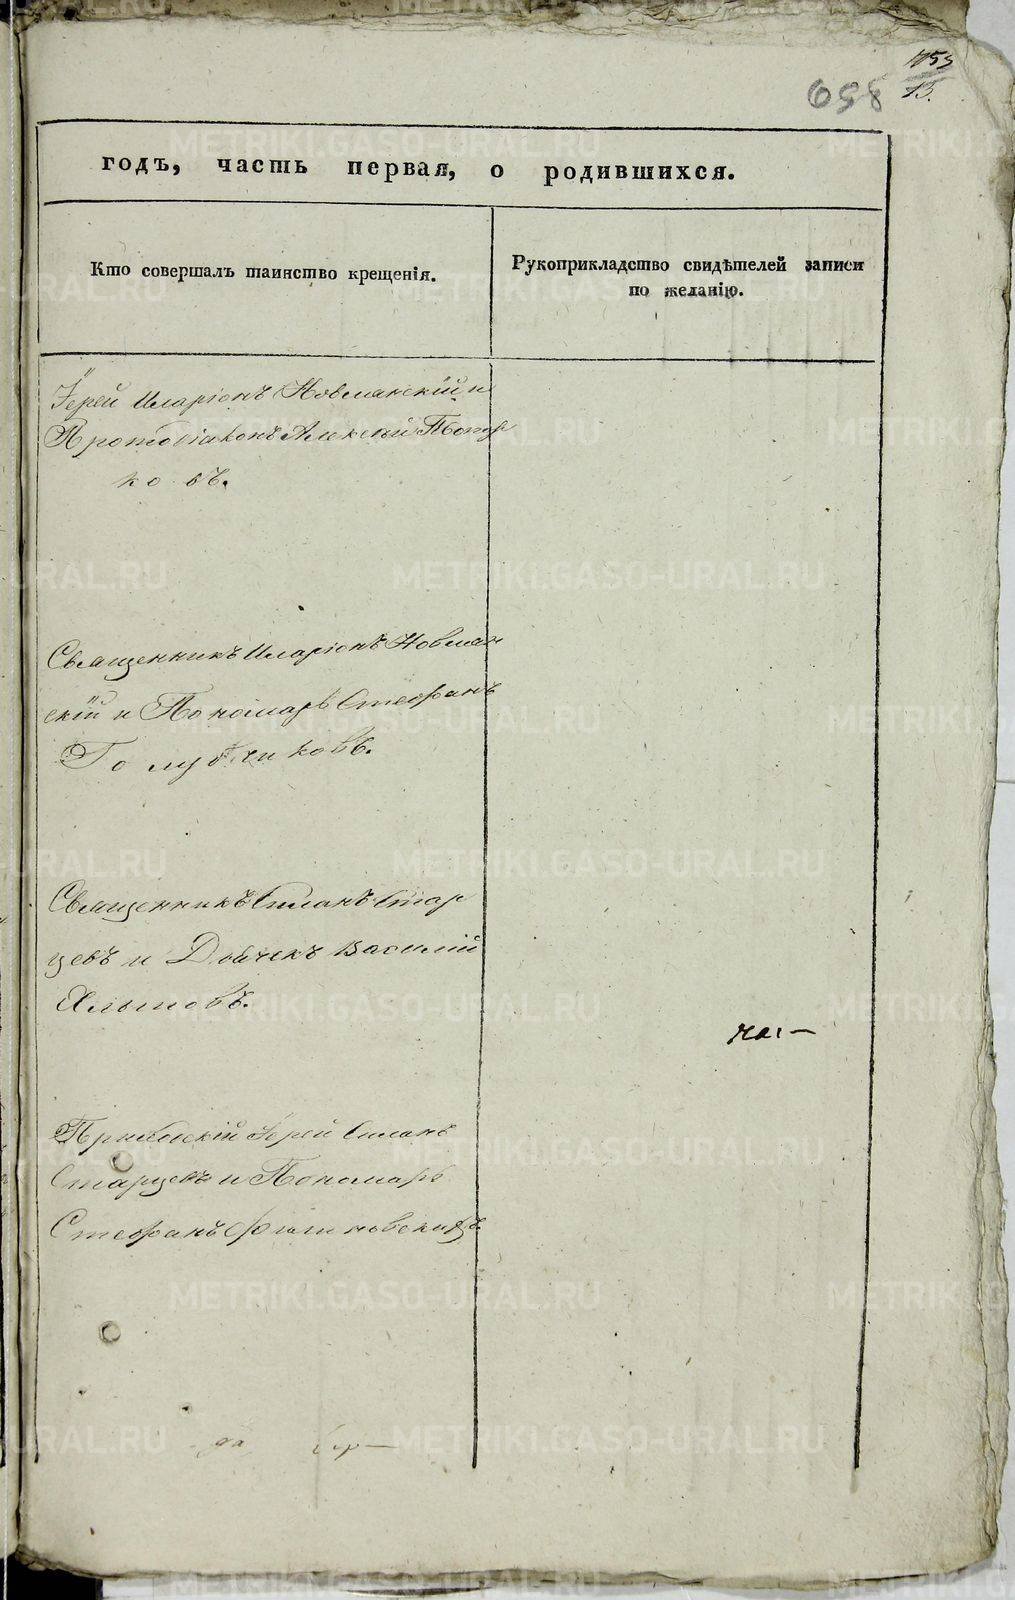 658
13.
годъ, часть первая, о родившихся.
Кто совершалъ таинство крещенія.
Рукоприкладство свидѣтелей записи
по желанію.
Іерей Иларіонъ Новланскій и
Протодіаконъ Алексѣй
ковъ.
Священникъ Иларіонъ Новлан
скій и Пономарь Стефанъ
Голубчиковъ.
Священникъ Силанъ Стар
цевъ и Дьячекъ Василій
наς—
Іерей Силанъ
Старцевъ и Пономарь
Стефанъ
да
METRIKI.GASO-URAL.RU